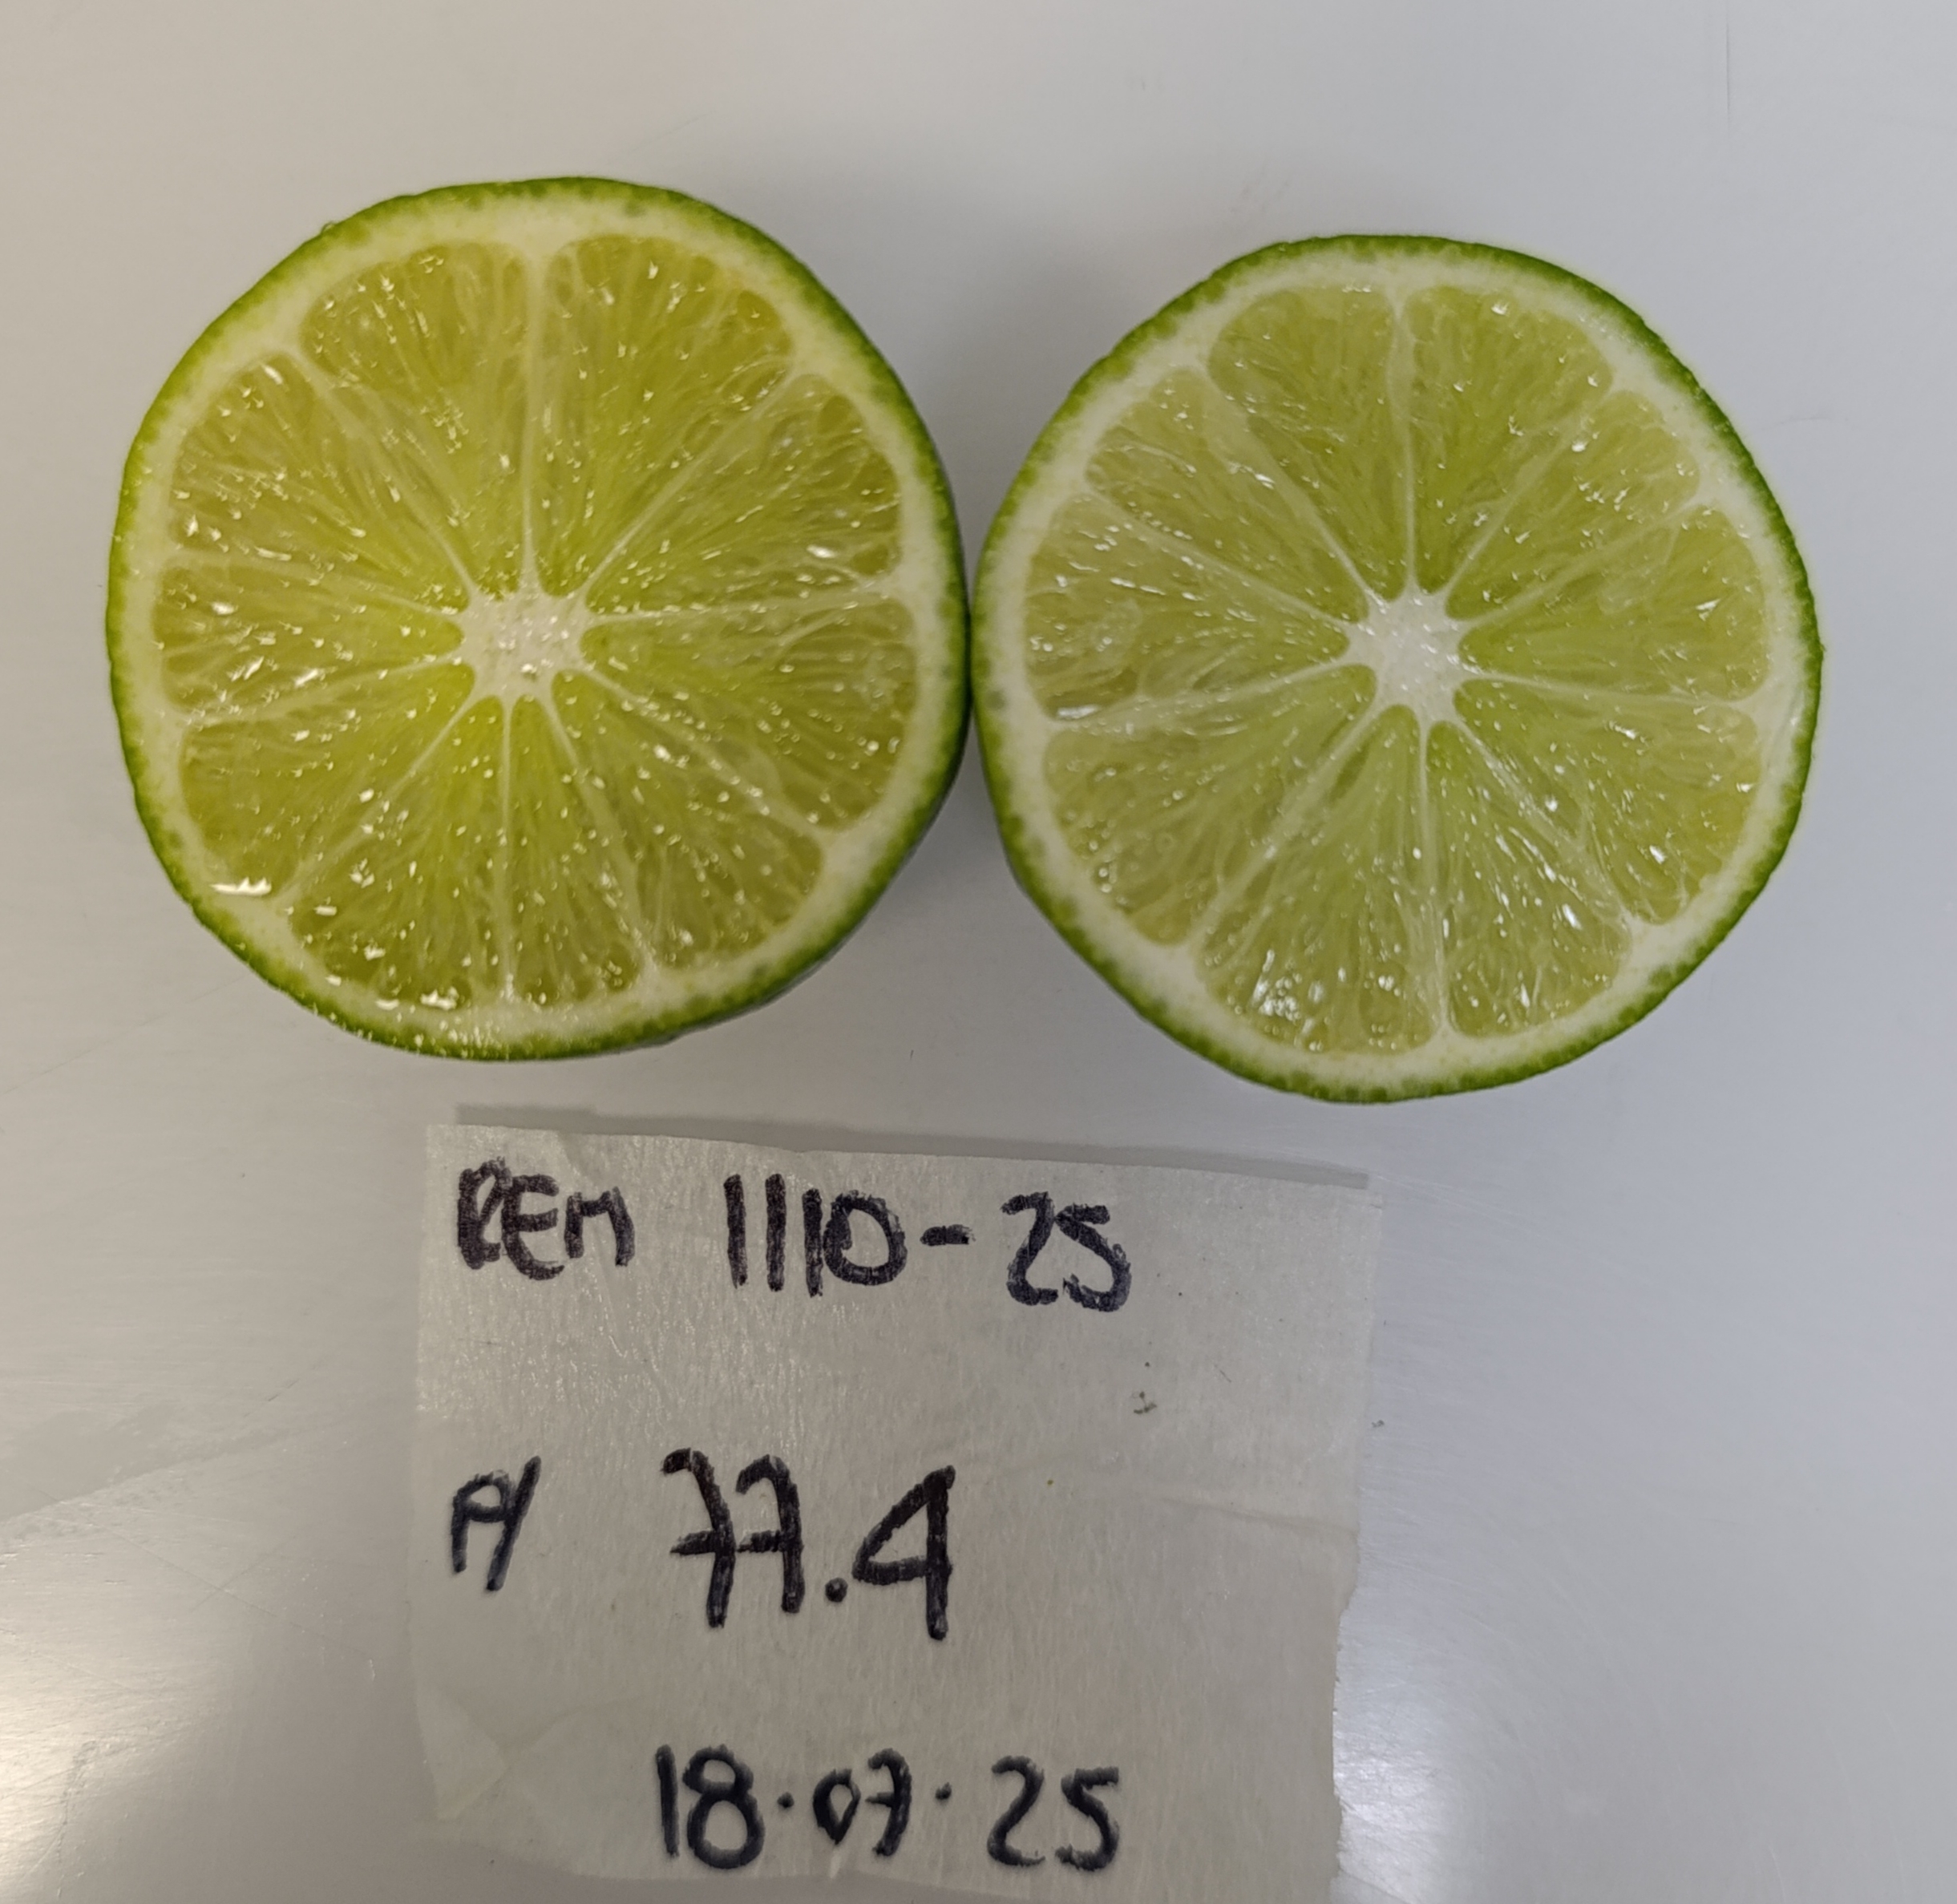 REM 1110-25
P/ 77.4
18.07.25